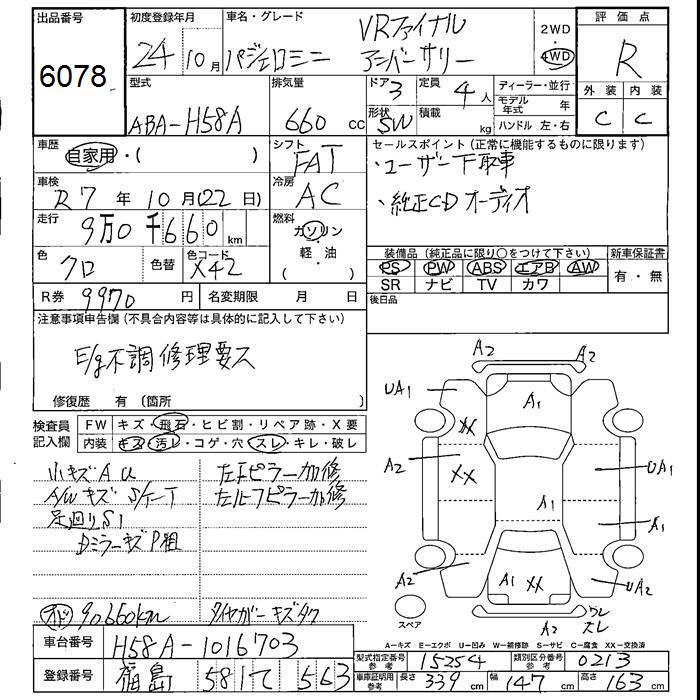 出品番号
6078
初度登録年月
24 10月
車名・グレード
パジェロミニ
VRファイナル
アニバーサリー
2WD
4WD
評価点
R
外装 内装
C C
型式
ABA-H58A
排気量
660 cc
ドア 3
形状 SW
定員 4人
積載 kg
ディーラー・並行
モデル年式 年
ハンドル 左・右
車歴
自家用・( )
シフト
FAT
車検
R7年10月(22日)
冷房
AC
走行
9万0千660km
燃料
ガソリン
軽・油
( )
色
クロ
色替
色コード
X42
R券 9970円
名変期限 月 日
セールスポイント(正常に機能するものに限ります)
・ユーザー下取車
・純正CDオーディオ
装備品(純正品に限り○をつけて下さい)
PS PW ABS エアB AW
SR ナビ TV カワ
新車保証書
有・無
後日品
注意事項申告欄(不具合内容等は具体的に記入して下さい)
E/g不調修理要ス
修復歴 有(箇所 )
検査員記入欄
FW キズ・飛石・ヒビ割・リペア跡・X要
内装 キズ・汚レ・コゲ・穴・スレ・キレ・破レ
小キズAU
A/WキズS/ケーT
足廻りS1
DミラーキズP粗
左Fピラー加修
左ルーフピラー加修
オド 90660km
タイヤガーキズタク
A2 A2
UA1 A1
XX
A2 XX UA1
A1 A1
A2 A1 XX UA2
スペア
A2 ワレ
ズレ
A-キズ E-エクボ U-凹み W-補修跡 S-サビ C-腐食 XX-交換済
車台番号 H58A-1016703
登録番号 福島 581 て 563
型式指定番号 参考 15254
類別区分番号 参考 0213
車庫証明用 参考 長さ 339cm 幅 147cm 高さ 163cm